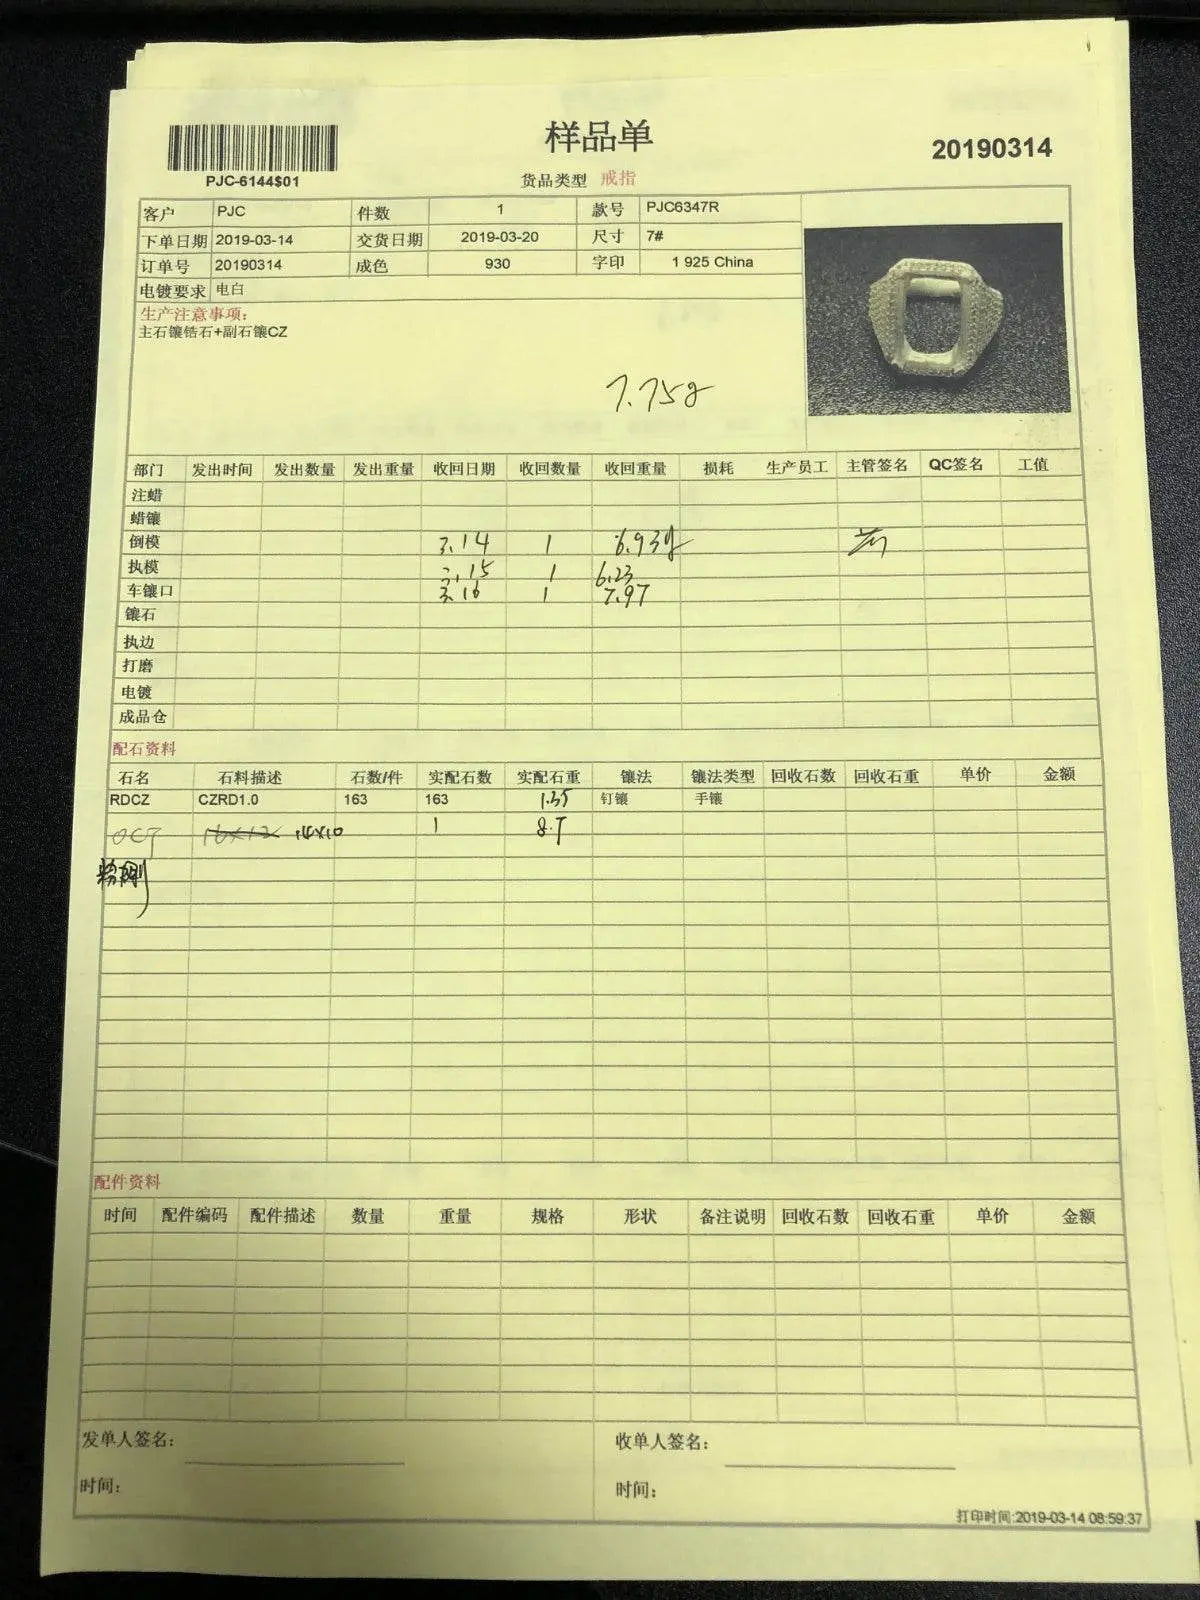 样品单
20190314
PJC-6144$01
货品类型 戒指
客户 PJC 件数 1 款号 PJC6347R
下单日期 2019-03-14 交货日期 2019-03-20 尺寸 7#
订单号 20190314 成色 930 字印 1 925 China
电镀要求 电白
生产注意事项:
主石镶锆石+副石镶CZ
7.75g
部门 发出时间 发出数量 发出重量 收回日期 收回数量 收回重量 损耗 生产员工 主管签名 QC签名 工值
注蜡
蜡镶
倒模 3.14 1 6.93g
执模 3.15 1 6.23
车镶口 3.16 1 7.97
镶石
执边
打磨
电镀
成品仓
配石资料
石名 石料描述 石数/件 实配石数 实配石重 镶法 镶法类型 回收石数 回收石重 单价 金额
RDCZ CZRD1.0 163 163 1.35 钉镶 手镶
OCT 16x12 14x10 1 8.7
配件资料
时间 配件编码 配件描述 数量 重量 规格 形状 备注说明 回收石数 回收石重 单价 金额
发单人签名: 收单人签名:
时间: 时间:
打印时间:2019-03-14 08:59:37